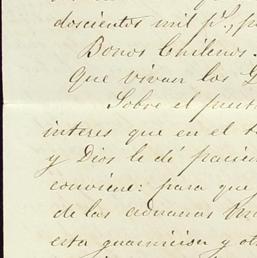 doscientos mil p.s, p
Bonos Chilenos.
Que vivan los G
Sobre el puert
interes que en el t
y Dios le dé pacien
conviene: para que
de las aduanas
esta guarnicion y ot